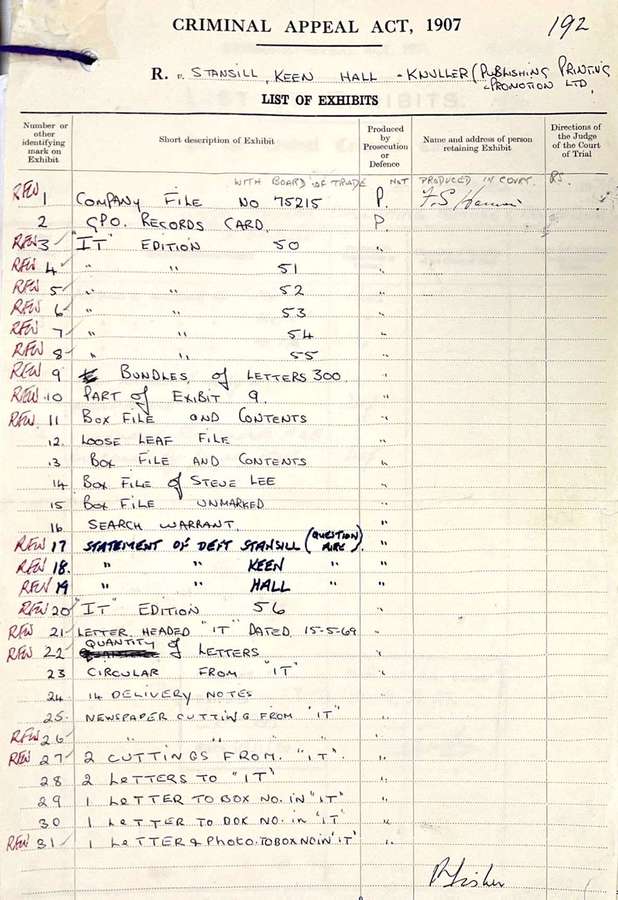 CRIMINAL APPEAL ACT, 1907
192
R. v. STANSILL, KEEN HALL - KNULLER (PUBLISHING PRINTING
& PROMOTION LTD.
LIST OF EXHIBITS
Number or other identifying mark on Exhibit Short description of Exhibit Produced by Prosecution or Defence Name and address of person retaining Exhibit Directions of the Judge of the Court of Trial
WITH BOARD OF TRADE NOT PRODUCED IN COURT.
RFW 1 COMPANY FILE NO 75215 P.
2 GPO. RECORDS CARD. P.
RFW 3 "IT" EDITION 50 "
RFW 4 " " 51 "
RFW 5 " " 52 "
RFW 6 " " 53 "
RFW 7 " " 54 "
RFW 8 " " 55 "
RFW 9 BUNDLES of LETTERS 300. "
RFW 10 PART of EXIBIT 9. "
RFW 11 BOX FILE AND CONTENTS "
12. LOOSE LEAF FILE "
13 BOX FILE AND CONTENTS "
14 BOX FILE of STEVE LEE "
15 BOX FILE UNMARKED "
16 SEARCH WARRANT. "
RFW 17 STATEMENT OF DEFT STANSILL (QUESTION AIRE). "
RFW 18. " " KEEN " "
RFW 19 " " HALL " "
RFW 20 "IT" EDITION 56 "
RFW 21 LETTER HEADED "IT" DATED 15-5-69 "
RFW 22 QUANTITY of LETTERS "
23 CIRCULAR FROM "IT" "
24 14 DELIVERY NOTES "
25. NEWSPAPER CUTTING FROM "IT" "
RFW 26 " " " " "
RFW 27 2 CUTTINGS FROM. "IT". "
28 2 LETTERS TO "IT" "
29 1 LETTER TO BOX NO. IN "IT" "
30 1 LETTER TO BOX NO. in "IT" "
RFW 31 1 LETTER & PHOTO. TO BOX NO IN "IT" "